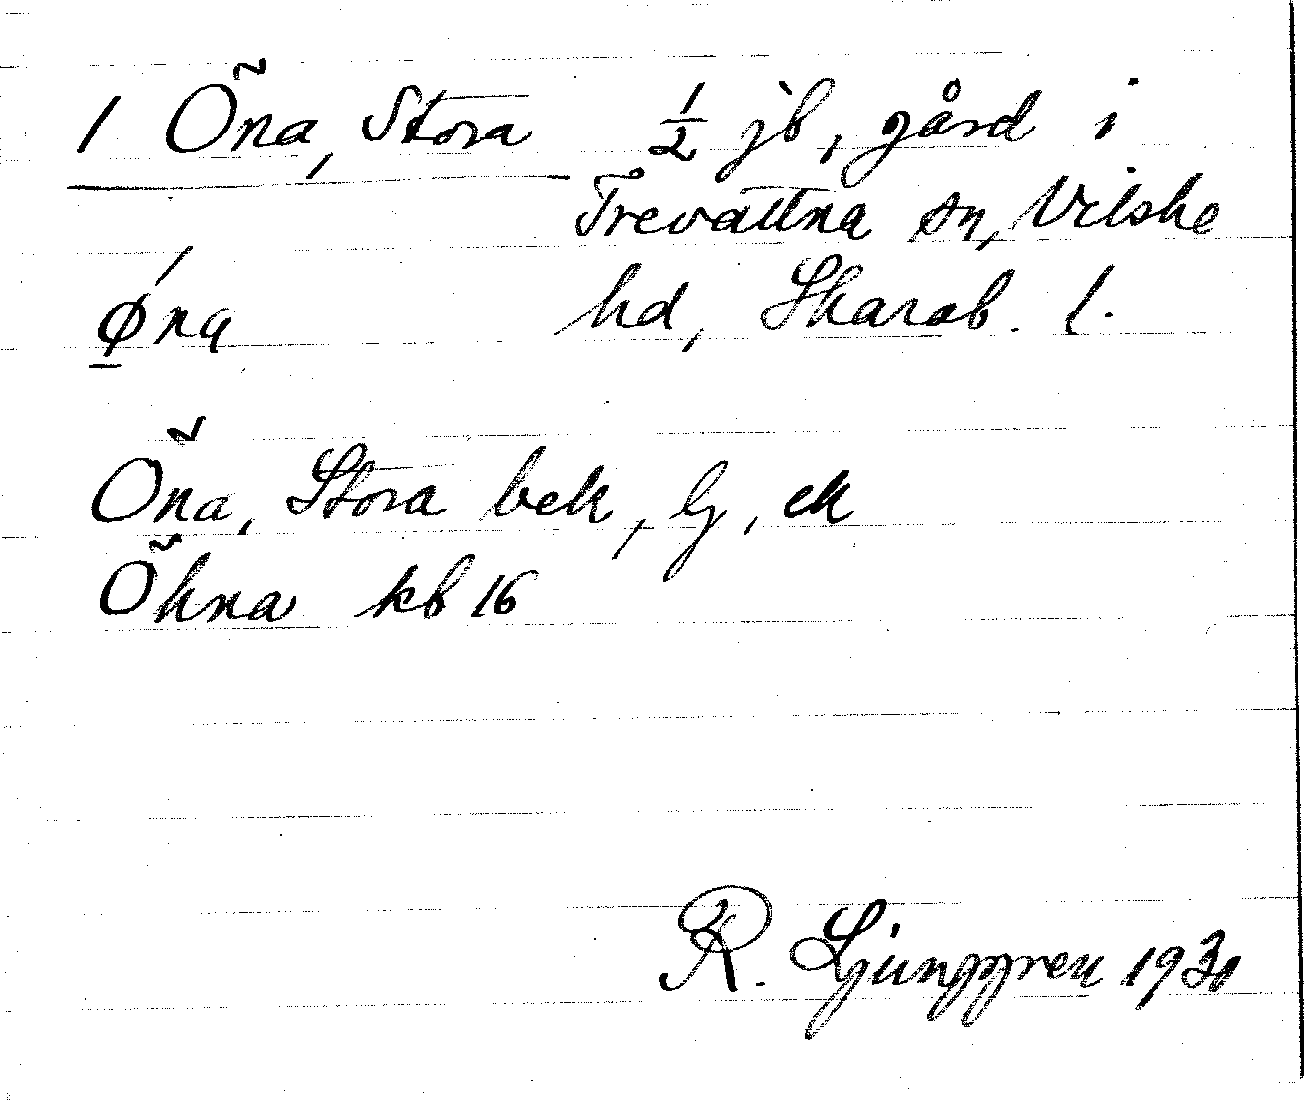 1 Öna, Stora ½ jb, gård i
Trevattna sn, Vilske
øna hd, Skarab. l.
Öna, Stora bek, lj, ek
Öhna kb 16
R. Ljunggren 1930